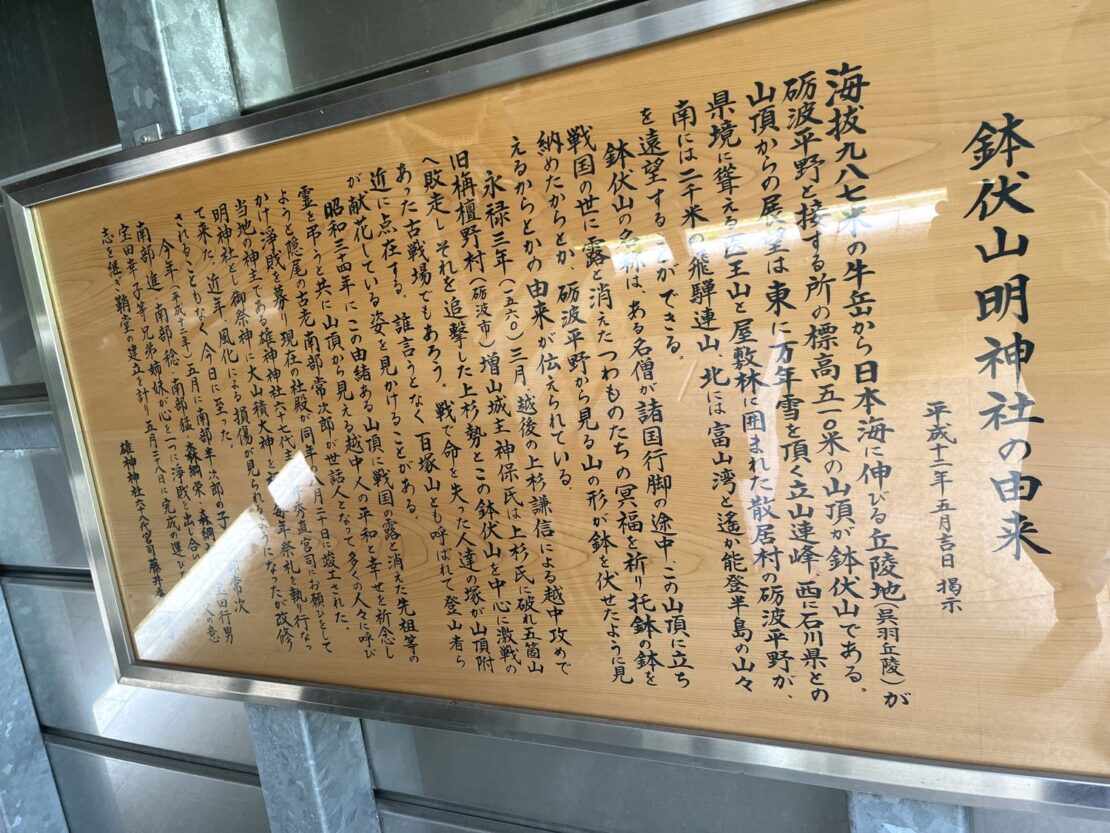 鉢伏山明神社の由来
平成十二年五月吉日 掲示
海抜九八七米の牛岳から日本海に伸びる丘陵地(呉羽丘陵)が
砺波平野と接する所の標高五一〇米の山頂が鉢伏山である。
山頂からの展望は東に万年雪を頂く立山連峰、西に石川県との
県境に聳える医王山と屋敷林に囲まれた散居村の砺波平野が、
南には二千米の飛騨連山、北には富山湾と遙か能登半島の山々
を遠望することができる。
鉢伏山の名称は、ある名僧が諸国行脚の途中、この山頂に立ち
戦国の世に露と消えたつわものたちの冥福を祈り托鉢の鉢を
納めたからとか、砺波平野から見る山の形が鉢を伏せたように見
えるからとかの由来が伝えられている。
永禄三年(一五六〇)三月、越後の上杉謙信による越中攻めで
旧栴檀野村(砺波市)増山城主神保氏は上杉氏に破れ五箇山
へ敗走し それを追撃した上杉勢とこの鉢伏山を中心に激戦の
あった古戦場でもあろう。戦で命を失った人達の塚が山頂附
近に点在する。誰言うとなく百塚山とも呼ばれて登山者ら
が献花している姿を見かけることがある。
昭和三十四年にこの由緒ある山頂に戦国の露と消えた先祖等の
霊を弔うと共に山頂から見える越中人の平和と幸せを祈念し
ようと隠尾の古老南部常次郎が世話人となって、多くの人々に呼び
かけ浄財を募り現在の社殿が同年八月二十日に竣工された。
当地の神主である雄神神社六十七代 秀直宮司にお願いをして
明神社とし御祭神に大山積大神を 毎年祭礼を執り行なっ
て来た。近年、風化による損傷が見られるようになったが改修
されることもなく、今日に至った。
今年(平成十二年)五月に南部半次郎の子 常次
南部進、南部稔、南部猛、森綱栄、森綱 宝田行男
宝田幸子等兄弟姉妹が心を一つに浄財を出し合い 人の意
志を継ぎ鞘堂の建立を計り五月二十八日に完成の運び
雄神神社六十八代宮司藤井秀